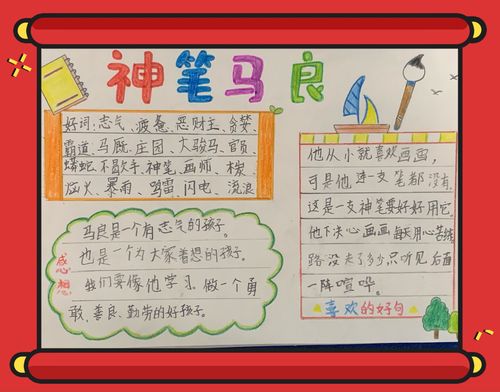 神笔马良
好词:志气、疲惫、恶财主、贪婪、
霸道、马厩、庄园、大骏马、官员、
蟒蛇、不敢、神笔、画师、
火、暴雨、鸣雷、闪电、流浪
马良是一个有志气的孩子。
也是一个为大家着想的孩子。
我们要像他学习。做一个勇
敢、善良、勤劳的好孩子。
感想
他从小就喜欢画画,
可是他连一支笔都没有。
这是一支神笔要好好用它。
他下决心画画每天用心苦练
路没走了多少只听见后面
一阵喧哗。
喜欢的好句